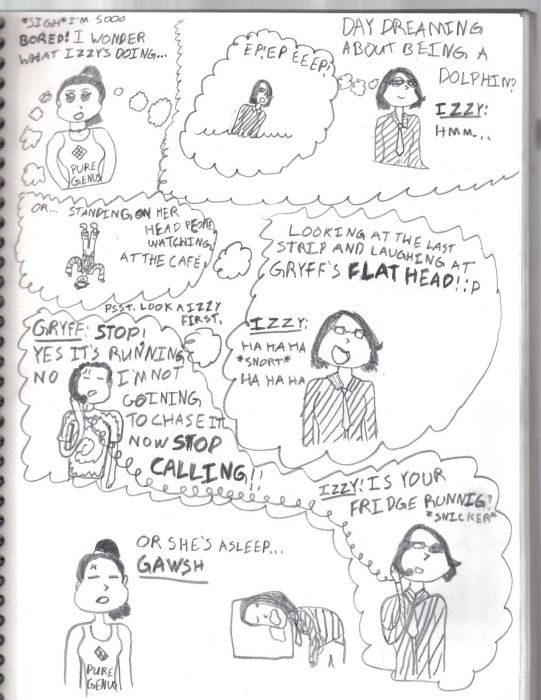 *SIGH* I'M SOOO
BORED! I WONDER
WHAT IZZY'S DOING...
PURE
GENUS
EP! EP EEEP!
DAY DREAMING
ABOUT BEING A
DOLPHIN?
IZZY:
HMM...
OR... STANDING ON HER
HEAD PEOPLE
WATCHING
AT THE CAFÉ,
LOOKING AT THE LAST
STRIP AND LAUGHING AT
GRYFF'S FLAT HEAD!:P
IZZY:
HA HA HA
*SNORT*
HA HA HA
PSST. LOOK A IZZY
FIRST.
GRYFF: STOP!
YES IT'S RUNNING
NO I'M NOT
GOINING
TO CHASE IT
NOW STOP
CALLING!!
IZZY: IS YOUR
FRIDGE RUNNIG?
*SNICKER*
OR SHE'S ASLEEP...
GAWSH
PURE
GENU